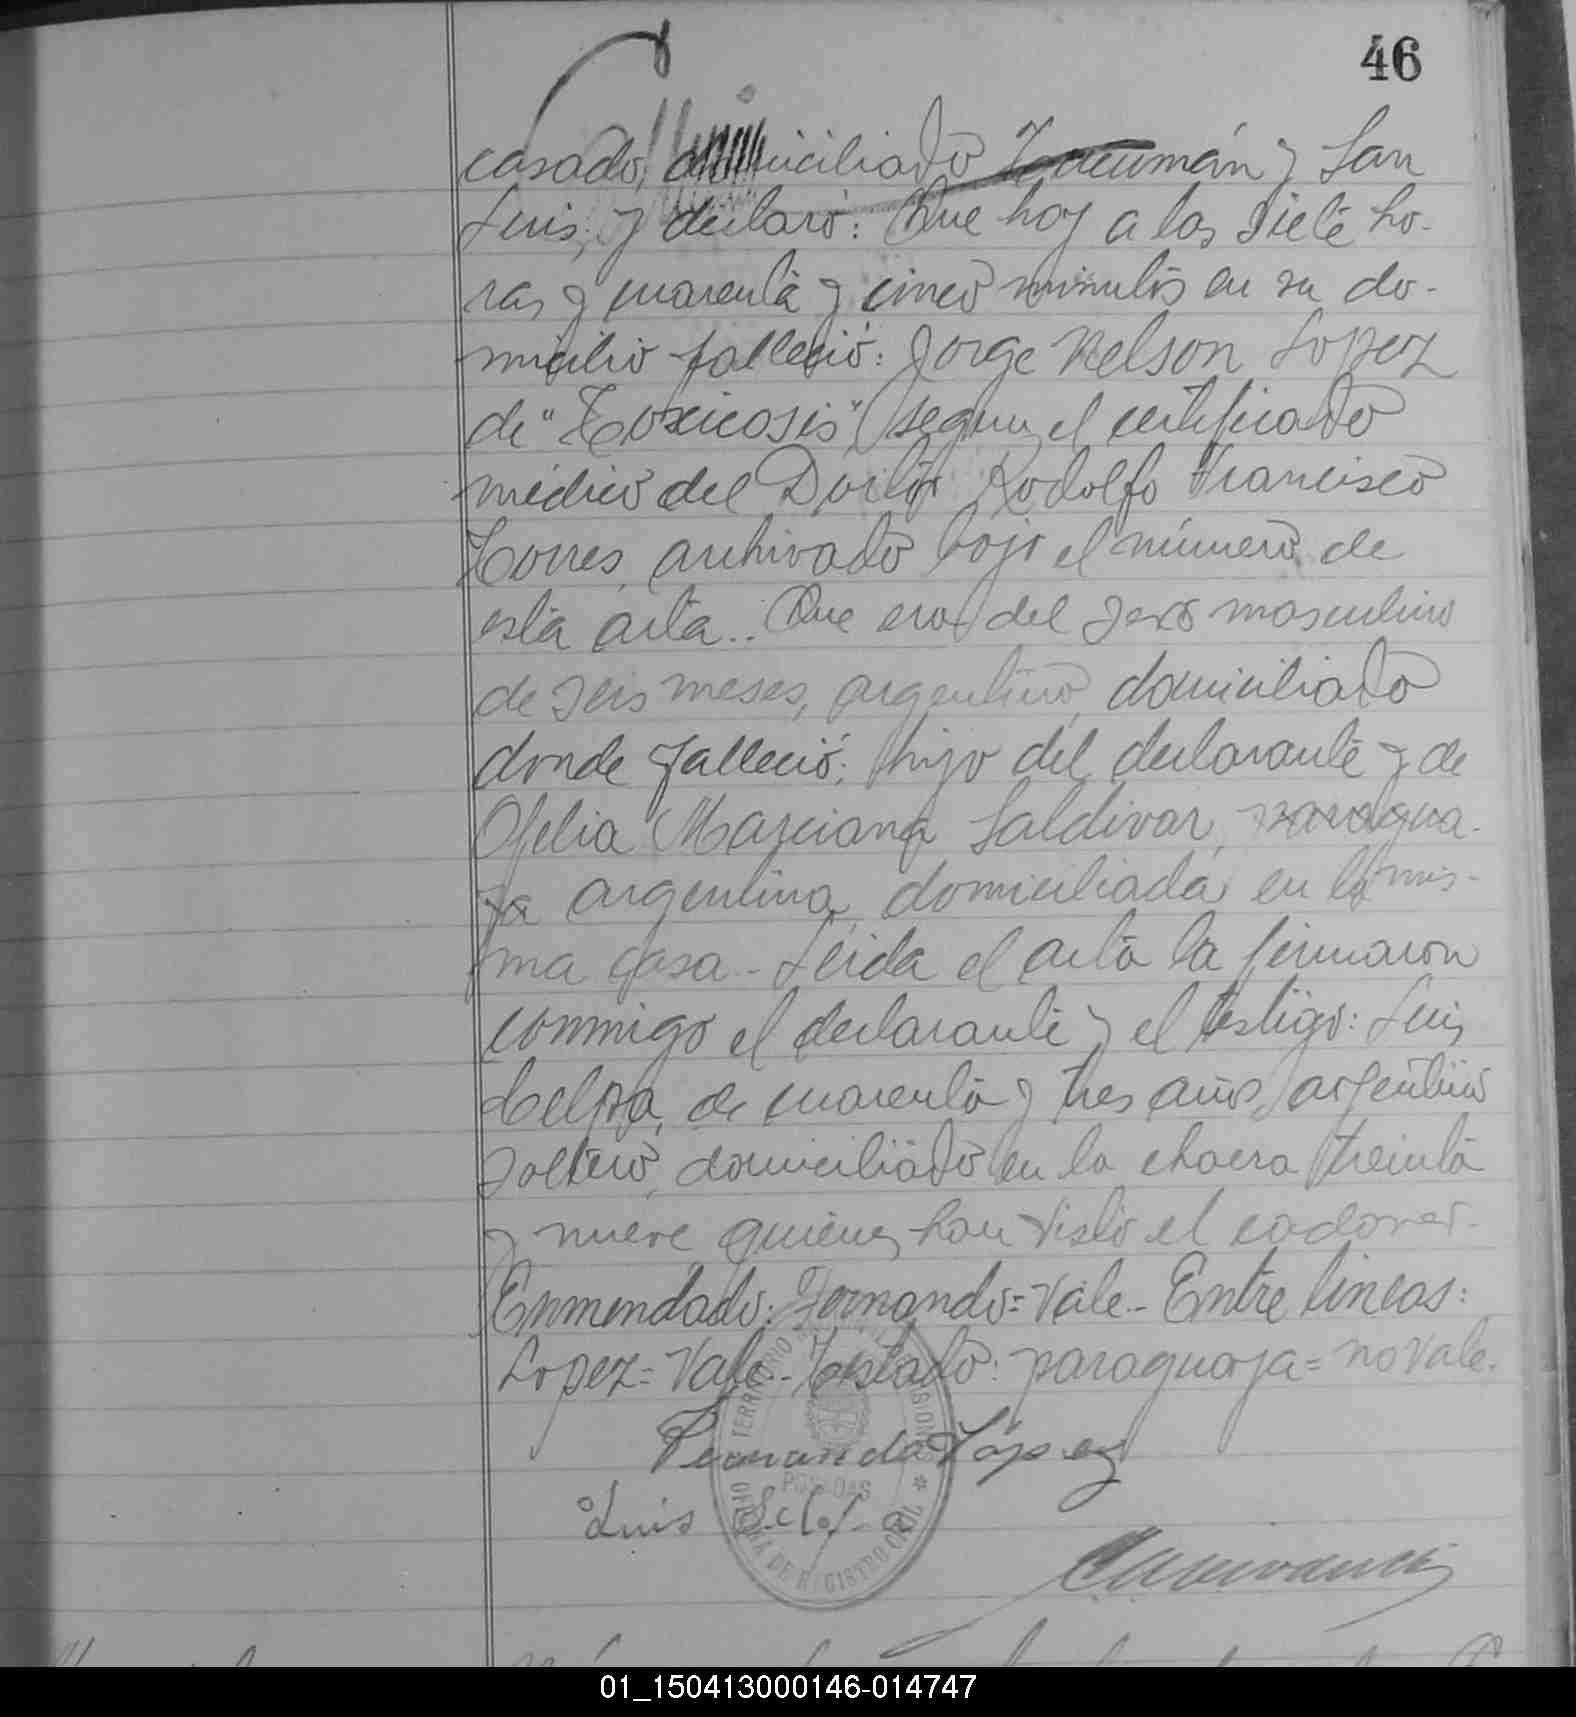 46
casado, domiciliado Tucumán y San
Luis, y declaró: Que hoy a las siete ho-
ras y cuarenta y cinco minutos en su do-
micilio falleció: Jorge Nelson Lopez
de "Toxicosis" segun el certificado
médico del Doctor Rodolfo Francisco
Torres, archivado bajo el número de
esta acta.. Que era del sexo masculino
de seis meses, argentino, domiciliado
donde falleció; hijo del declarante y de
Ofelia Marciana Saldivar, paragua-
ya argentina, domiciliada en la mis-
ma casa - Leida el acta la firmaron
conmigo el declarante y el testigo: Luis
de cuarenta y tres años, argentino
soltero, domiciliado en la chacra treinta
y nueve quienes han visto el cadaver.-
Enmendado: Fernando = Vale - Entre lineas:
Lopez = Vale - Testado: paraguaya = no vale.
Fernando López
Luis
TERRITORIO NACIONAL DE MISIONES
POSADAS
OFICINA DE REGISTRO CIVIL
01_150413000146-014747